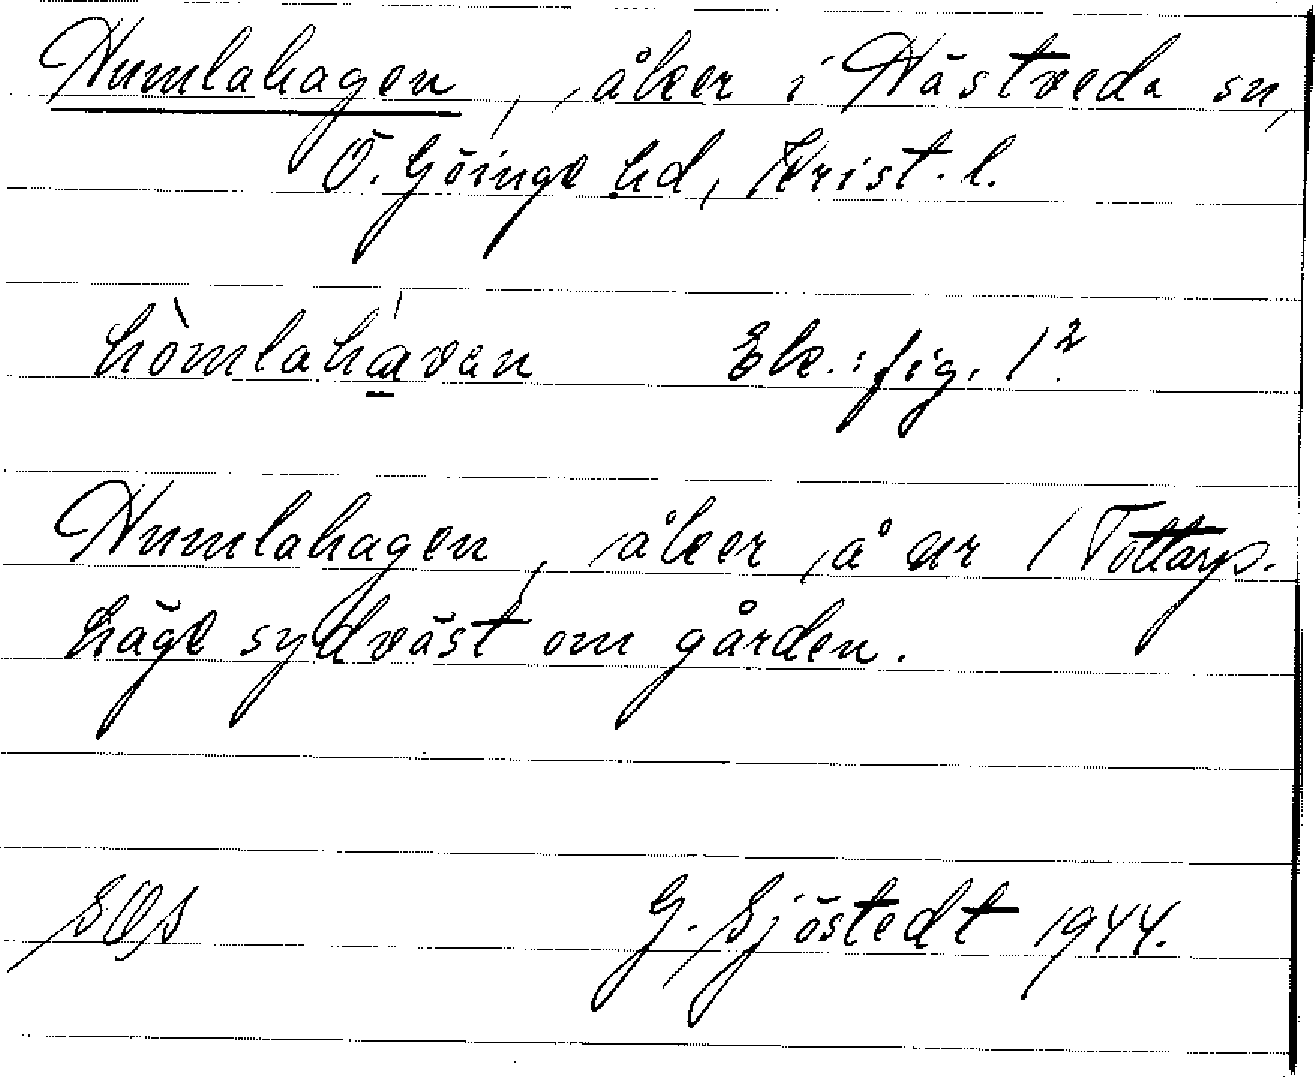 Humlahagen, åker i Hästveda sn,
Ö. Göinge hd, Krist. l.
hòmlahávan Ek.: fig. 1².
Humlahagen, åker å nr 1 Tottarps-
häge sydväst om gården.
SOS G. Sjöstedt 1944.